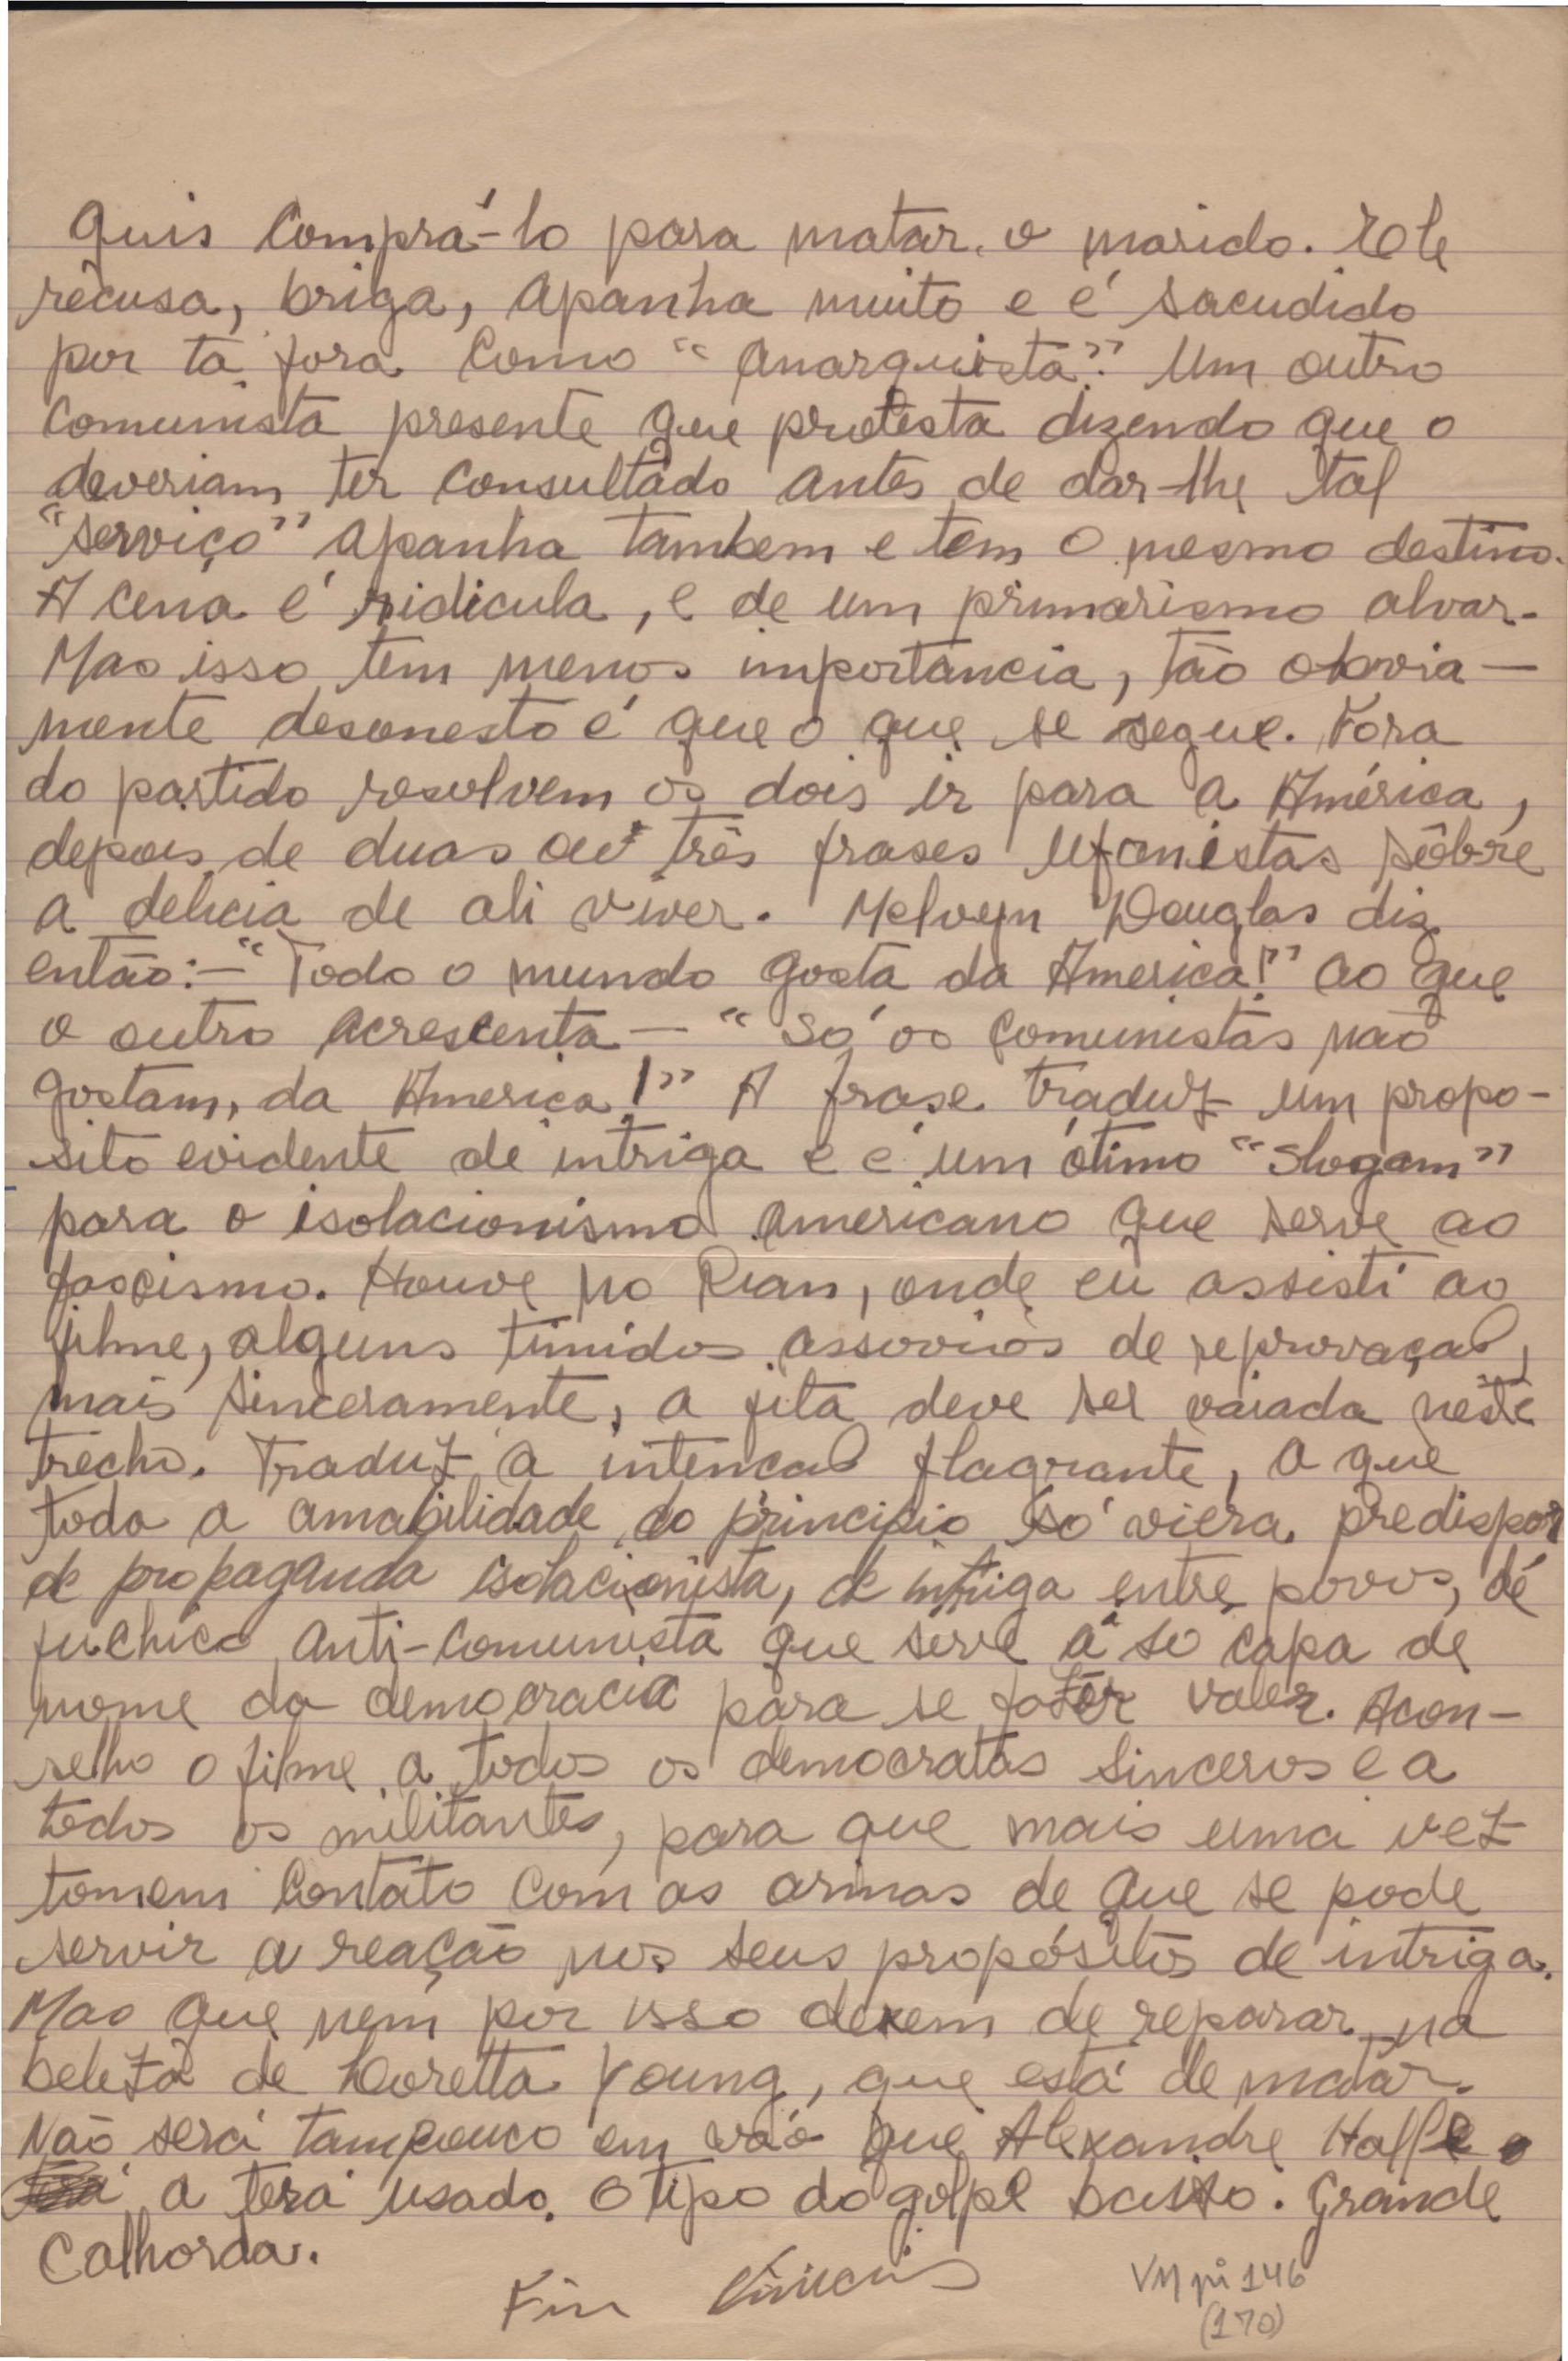 quis comprá-lo para matar o marido. Ele
recusa, briga, apanha muito e é sacudido
por ta fora como "anarquista". Um outro
comunista presente que protesta dizendo que o
deveriam ter consultado antes de dar-lhe tal
"serviço" apanha tambem e tem o mesmo destino.
A cena é ridicula, e de um primarismo alvar.
Mas isso tem menos importancia, tão obvia-
mente desonesto é que o que se segue. Fora
do partido resolvem os dois ir para a América,
depois de duas ou três frases ufanistas sôbre
a delicia de ali viver. Melvyn Douglas diz
então:- "Todo o mundo gosta da America!" ao que
o outro acrescenta - "Só os comunistas não
gostam da America!" A frase traduz um propo-
sito evidente de intriga e é um ótimo "slogam"
para o isolacionismo americano que serve ao
fascismo. Houve no Rian, onde eu assisti ao
filme, alguns timidos assovios de reprovação,
mais sinceramente, a fita deve ser vaiada neste
trecho. Traduz a intenção flagrante, a que
toda a amabilidade do principio só viera predispor
de propaganda isolacionista, de intriga entre povos, de
fuchico anti-comunista que serve a so capa de
nome da democracia para se fazer valer. Acon-
selho o filme a todos os democratas sinceros e a
todos os militantes, para que mais uma vez
tomem contato com as armas de que se pode
servir a reação nos seus propósitos de intriga.
Mas que nem por isso deixem de reparar na
beleza de Loretta Young, que está de matar.
Não será tampouco em vão que Alexandre Hall
a terá usado. O tipo do golpe baixo. Grande
calhorda.
Fim Vinicius
VM pi 146
(170)